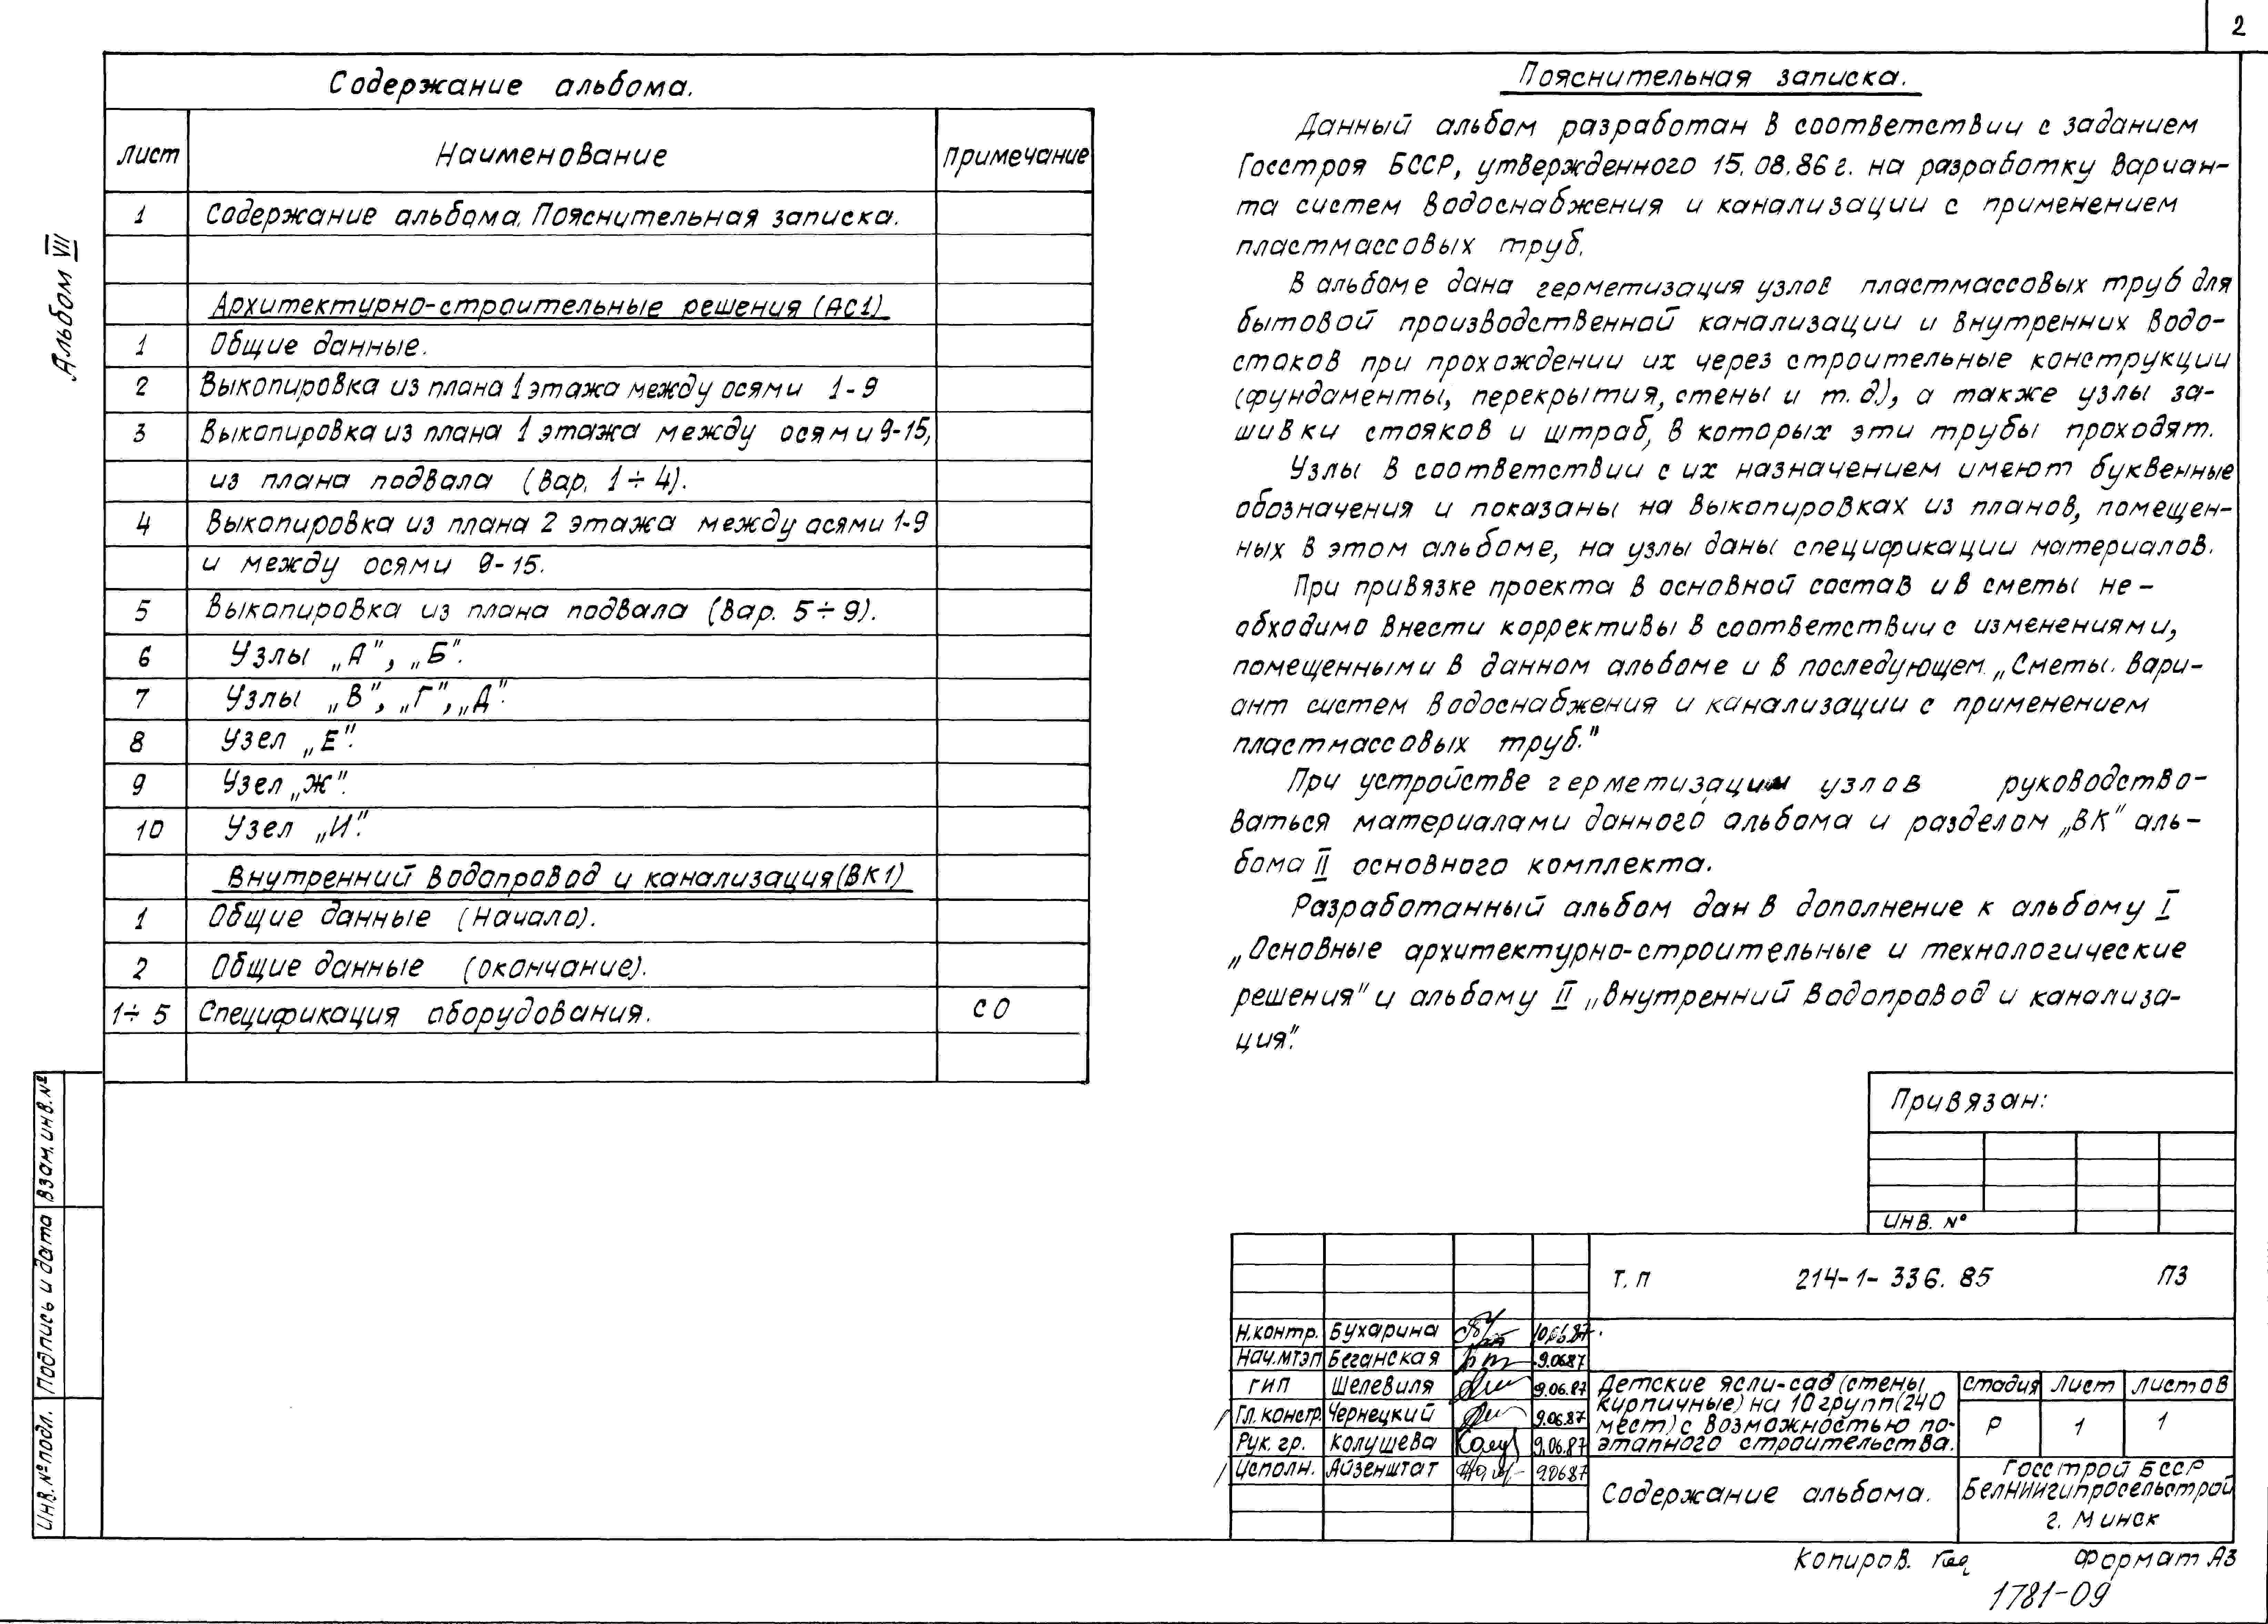 2
Альбом VII
Содержание альбома.
лист Наименование примечание
1 Содержание альбома. Пояснительная записка.
Архитектурно-строительные решения (АС1)
1 Общие данные.
2 Выкопировка из плана 1 этажа между осями 1-9
3 Выкопировка из плана 1 этажа между осями 9-15,
из плана подвала (вар. 1÷4).
4 Выкопировка из плана 2 этажа между осями 1-9
и между осями 9-15.
5 Выкопировка из плана подвала (вар. 5÷9).
6 Узлы „А”, „Б”.
7 Узлы „В”, „Г”, „Д”.
8 Узел „Е”.
9 Узел „Ж”.
10 Узел „И”.
Внутренний водопровод и канализация (ВК1)
1 Общие данные (начало).
2 Общие данные (окончание).
1÷5 Спецификация оборудования. СО
Пояснительная записка.
Данный альбом разработан в соответствии с заданием
Госстроя БССР, утвержденного 15.08.86г. на разработку вариан-
та систем водоснабжения и канализации с применением
пластмассовых труб.
В альбоме дана герметизация узлов пластмассовых труб для
бытовой производственной канализации и внутренних водо-
стоков при прохождении их через строительные конструкции
(фундаменты, перекрытия, стены и т.д.), а также узлы за-
шивки стояков и штраб, в которых эти трубы проходят.
Узлы в соответствии с их назначением имеют буквенные
обозначения и показаны на выкопировках из планов, помещен-
ных в этом альбоме, на узлы даны спецификации материалов.
При привязке проекта в основной состав и в сметы не-
обходимо внести коррективы в соответствии с изменениями,
помещенными в данном альбоме и в последующем „Сметы. Вари-
ант систем водоснабжения и канализации с применением
пластмассовых труб.”
При устройстве герметизации узлов руководство-
ваться материалами данного альбома и разделом „ВК” аль-
бома II основного комплекта.
Разработанный альбом дан в дополнение к альбому I
„Основные архитектурно-строительные и технологические
решения” и альбому II „Внутренний водопровод и канализа-
ция”.
Привязан:
ИНВ. №
Т.п 214-1-336.85 ПЗ
Н.контр. Бухарина 10.06.87
Нач.МТЭП Беганская 9.06.87
ГИП Шелевиля 9.06.87
Гл.констр. Чернецкий 9.06.87
Рук. гр. Колушева 9.06.87
Исполн. Айзенштат 9.06.87
Детские ясли-сад (стены
кирпичные) на 10 групп (240
мест) с возможностью по-
этапного строительства.
стадия лист листов
Р 1 1
Содержание альбома.
Госстрой БССР
БелНИИгипросельстрой
г. Минск
Копиров.
Формат А3
1781-09
Инв.№подл. Подпись и дата Взам.инв.№